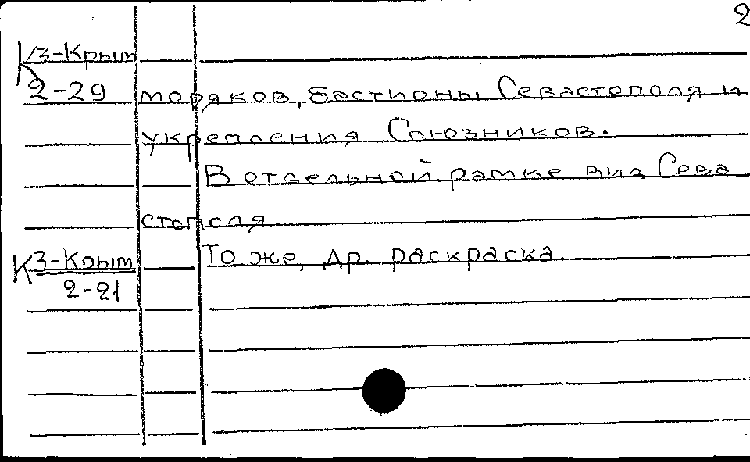 2
К 3-Крым
2-29 моряков, бастионы Севастополя и
укрепления Союзников.
В отдельной рамке вид Сева
стополя
К 3-Крым То же, др. раскраска.
2-21